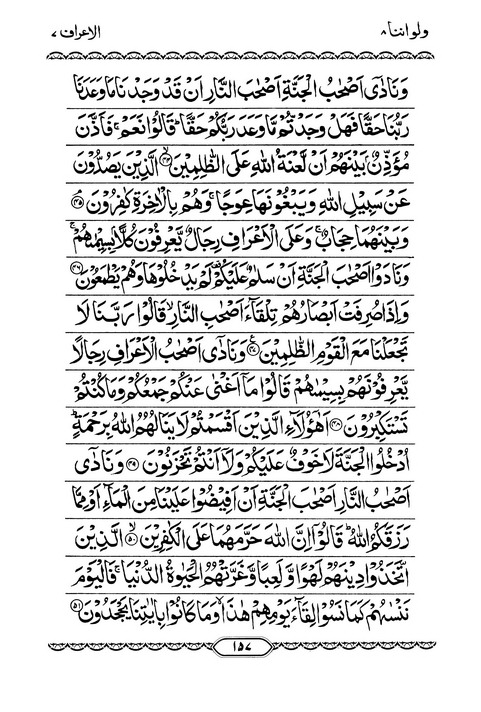 ولواننا ٨
الاعراف ٧
وَنَادٰۤى اَصْحٰبُ الْجَنَّةِ اَصْحٰبَ النَّارِ اَنْ قَدْ وَجَدْنَا مَا وَعَدَنَا
رَبُّنَا حَقًّا فَهَلْ وَجَدْتُّمْ مَّا وَعَدَ رَبُّكُمْ حَقًّا ؕ قَالُوْا نَعَمْ ۚ فَاَذَّنَ
مُؤَذِّنٌۢ بَيْنَهُمْ اَنْ لَّعْنَةُ اللّٰهِ عَلَى الظّٰلِمِيْنَ ﴿۴۴﴾ الَّذِيْنَ يَصُدُّوْنَ
عَنْ سَبِيْلِ اللّٰهِ وَيَبْغُوْنَهَا عِوَجًا ۚ وَهُمْ بِالْاٰخِرَةِ كٰفِرُوْنَ ﴿۴۵﴾
وَبَيْنَهُمَا حِجَابٌ ۚ وَعَلَى الْاَعْرَافِ رِجَالٌ يَّعْرِفُوْنَ كُلًّاۢ بِسِيْمٰىهُمْ ۚ
وَنَادَوْا اَصْحٰبَ الْجَنَّةِ اَنْ سَلٰمٌ عَلَيْكُمْ ۟ لَمْ يَدْخُلُوْهَا وَهُمْ يَطْمَعُوْنَ ﴿۴۶﴾
وَاِذَا صُرِفَتْ اَبْصَارُهُمْ تِلْقَآءَ اَصْحٰبِ النَّارِ ۙ قَالُوْا رَبَّنَا لَا
تَجْعَلْنَا مَعَ الْقَوْمِ الظّٰلِمِيْنَ ﴿۴۷﴾ وَنَادٰۤى اَصْحٰبُ الْاَعْرَافِ رِجَالًا
يَّعْرِفُوْنَهُمْ بِسِيْمٰىهُمْ قَالُوْا مَاۤ اَغْنٰى عَنْكُمْ جَمْعُكُمْ وَمَا كُنْتُمْ
تَسْتَكْبِرُوْنَ ﴿۴۸﴾ اَهٰۤؤُلَآءِ الَّذِيْنَ اَقْسَمْتُمْ لَا يَنَالُهُمُ اللّٰهُ بِرَحْمَةٍ ؕ
اُدْخُلُوا الْجَنَّةَ لَا خَوْفٌ عَلَيْكُمْ وَلَاۤ اَنْتُمْ تَحْزَنُوْنَ ﴿۴۹﴾ وَنَادٰۤى
اَصْحٰبُ النَّارِ اَصْحٰبَ الْجَنَّةِ اَنْ اَفِيْضُوْا عَلَيْنَا مِنَ الْمَآءِ اَوْ مِمَّا
رَزَقَكُمُ اللّٰهُ ؕ قَالُوْۤا اِنَّ اللّٰهَ حَرَّمَهُمَا عَلَى الْكٰفِرِيْنَ ﴿۵۰﴾ الَّذِيْنَ
اتَّخَذُوْا دِيْنَهُمْ لَهْوًا وَّلَعِبًا وَّغَرَّتْهُمُ الْحَيٰوةُ الدُّنْيَا ۚ فَالْيَوْمَ
نَنْسٰىهُمْ كَمَا نَسُوْا لِقَآءَ يَوْمِهِمْ هٰذَا ۙ وَمَا كَانُوْا بِاٰيٰتِنَا يَجْحَدُوْنَ ﴿۵۱﴾
١٥٧